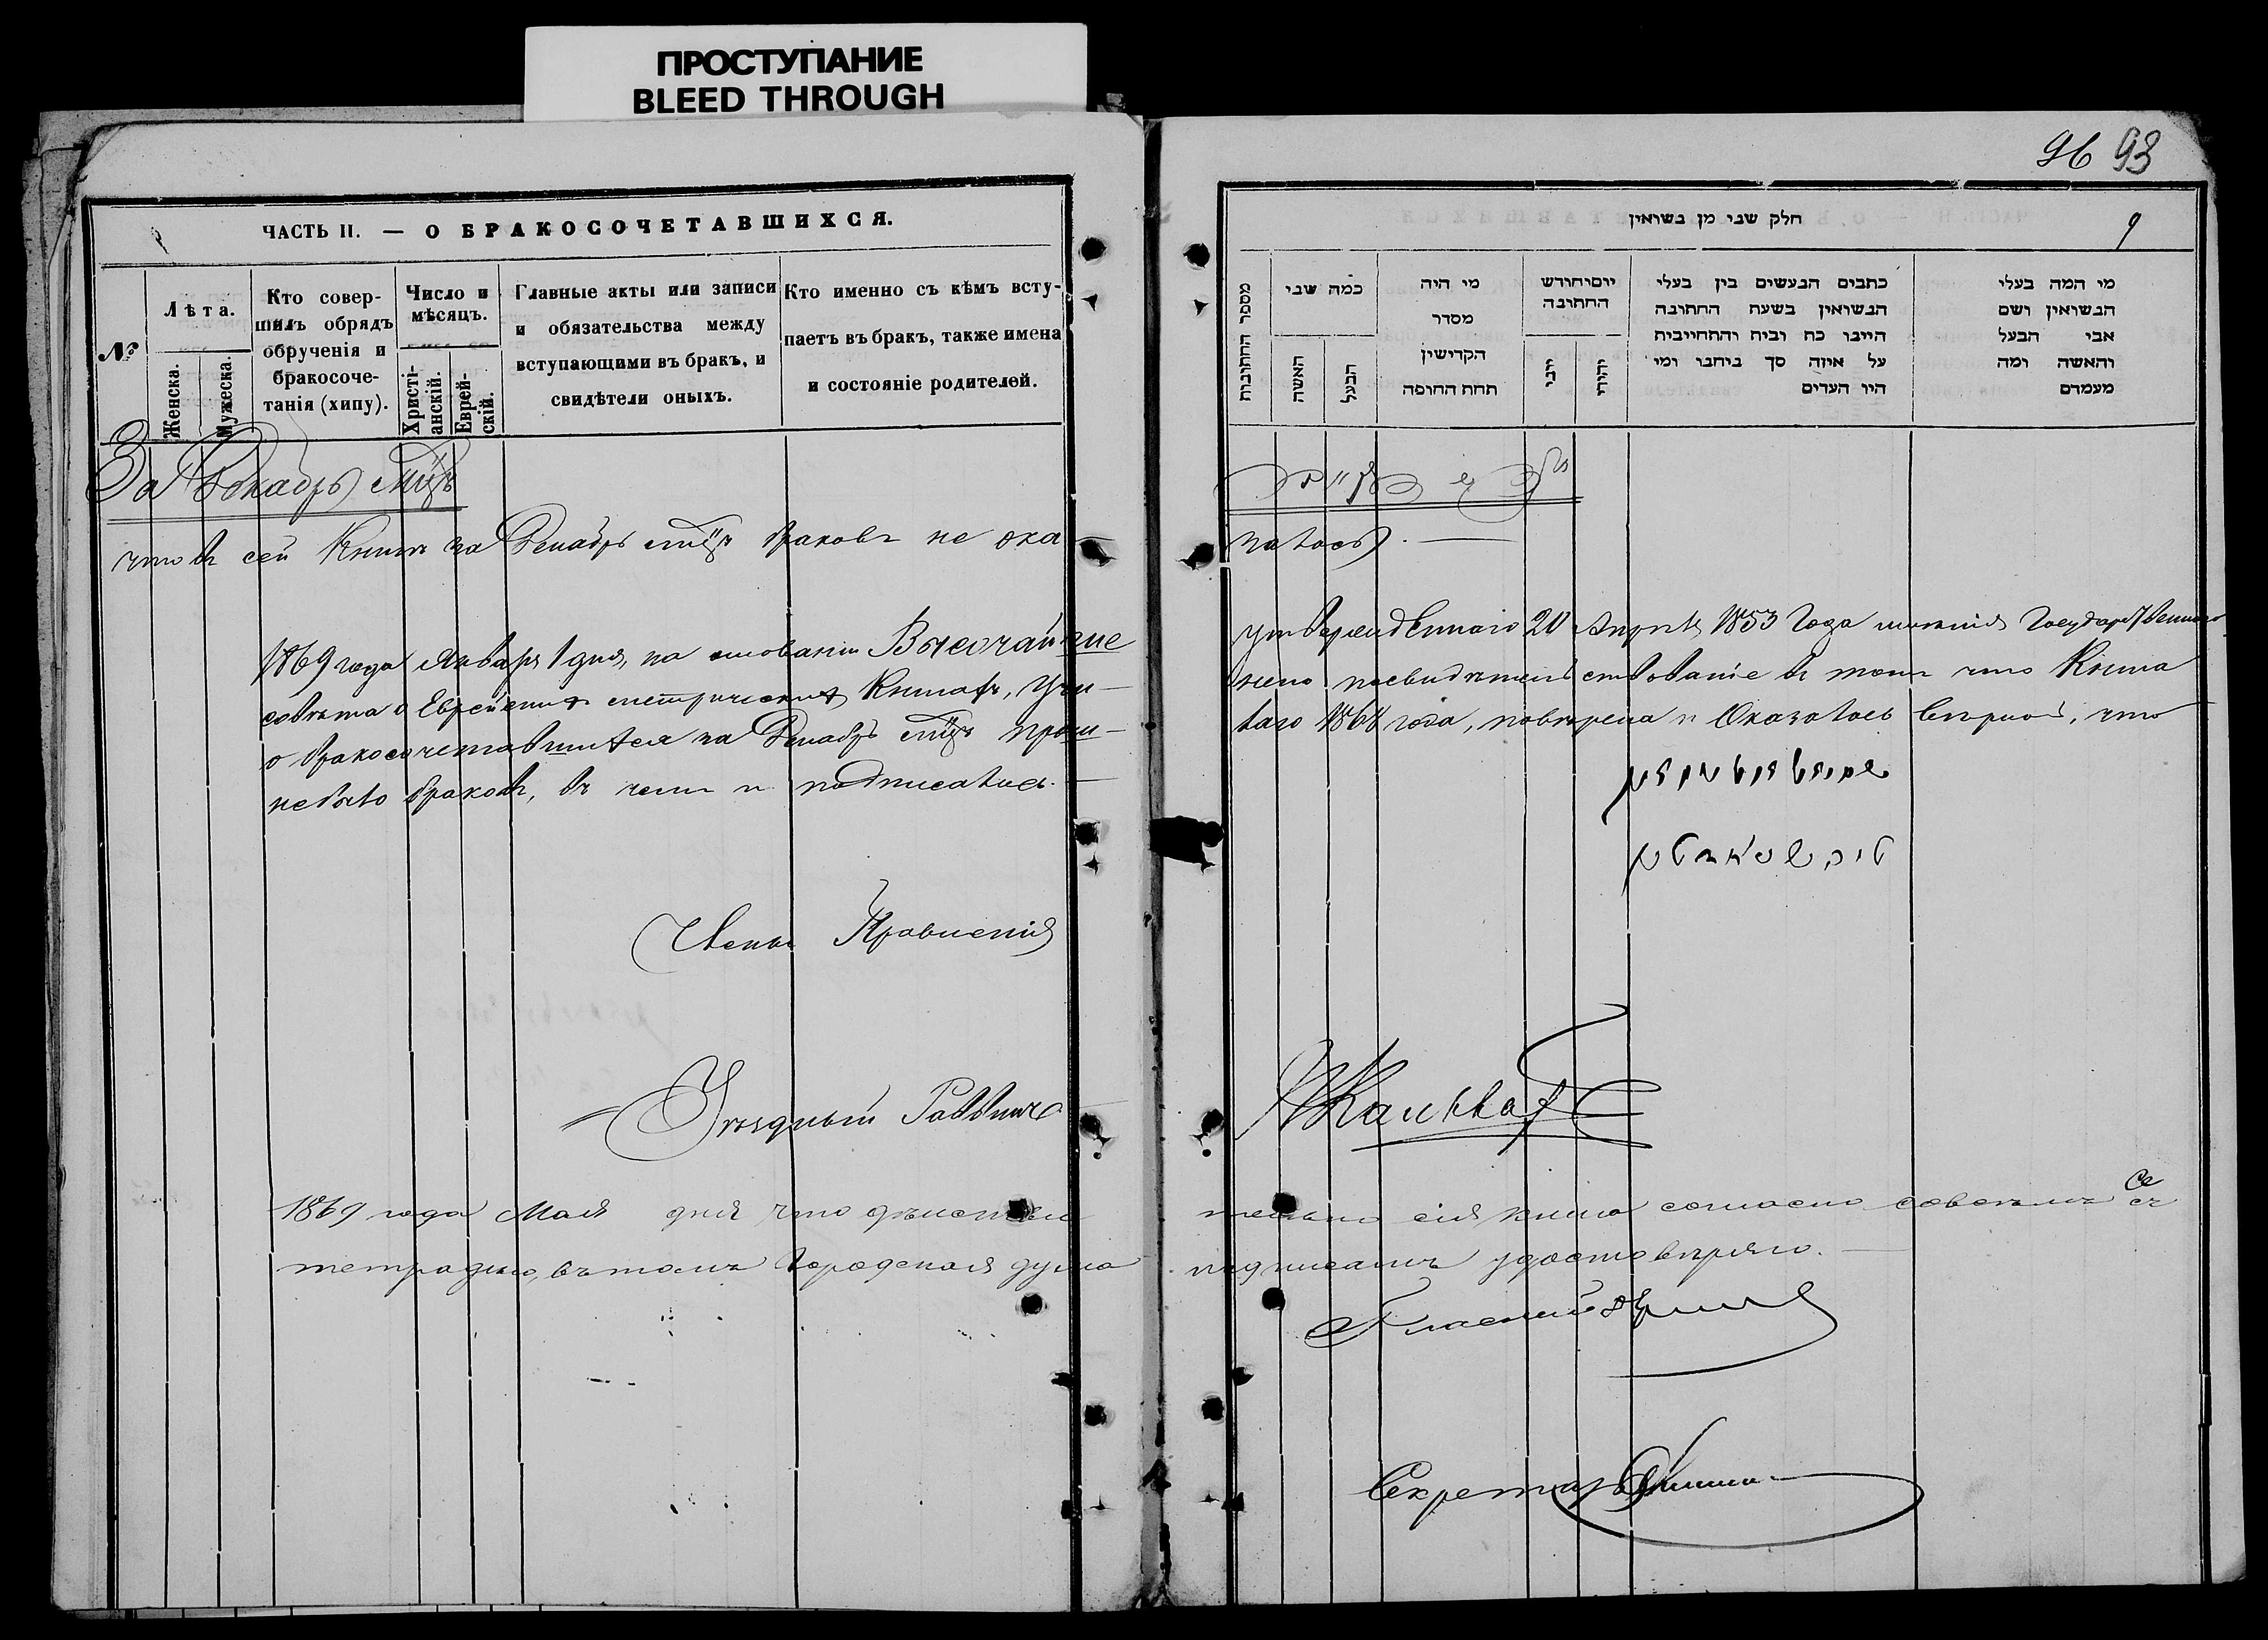 ПРОСТУПАНИЕ
BLEED THROUGH
96 93
ЧАСТЬ II. — О БРАКОСОЧЕТАВШИХСЯ.
№
Лѣта.
Женска.
Мужеска.
Кто совер-
шилъ обрядъ
обрученія и
бракосоче-
танія (хипу).
Число и
мѣсяцъ.
Христі-
анскій.
Еврей-
скій.
Главные акты или записи
и обязательства между
вступающими въ бракъ, и
свидѣтели оныхъ.
Кто именно съ кѣмъ всту-
паетъ въ бракъ, также имена
и состояніе родителей.
חלק שני מן נשואין
9
מספר החתונות
כמה שני
האשה
הבעל
מי היה
מסדר
הקדישין
תחת החופה
יוםיחודש
החתונה
יוני
יהודי
כתבים הנעשים בין בעלי
הנשואין בשעת החתונה
היינו כח וביח והתחייבית
על איזה סך ביחנו ומי
היו העדים
מי המה בעלי
הנשואין ושם
אבי הבעל
והאשה ומה
מעמדם
За Декабрь мѣцъ
что въ сей Книгѣ за Декабрь мѣцъ браковъ не ока
залось. —
1869 года Января 1 дня, на основаніи Высочайше
утвержденнаго 20 Апрѣля 1853 Года мнѣнія Государственнаго
совѣта о Еврейскихъ метрическихъ Книгахъ,
посвидѣтельствованіе въ томъ что Книга
о бракосочетавшихся за Декабрь мѣцъ прош-
лаго 1868 года, повѣрена и Оказалось вѣрной, что
небыло браковъ, въ чемъ и подписались. —
Члены Правленія
Уѣздный Раввинъ
1869 года Мая дня что дѣистви
тельно сія книга согласно совсѣмъ съ
тетрадью, въ томъ Городская дума
подписомъ удостовѣряю. —
Гласный
Секретарь